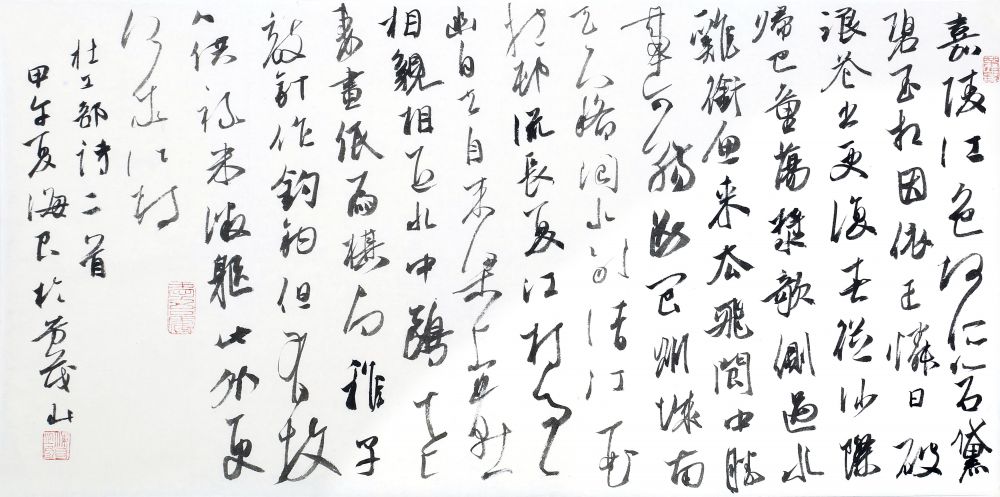 嘉陵江色何所似石黛
碧玉相因依正憐日破
浪花出更復春從沙際
歸巴童蕩槳欹側過水
雞銜魚來去飛閬中勝
事可腸斷閬州城南
天下稀閬水歌清江一曲
抱村流長夏江村事事
幽自去自来梁上燕
相親相近水中鷗老
妻畫紙為棋局稚子
敲針作鈎鉤但有故
人供祿米微軀此外更
何求江村
杜工部诗二首
甲午夏海良於芳茂山